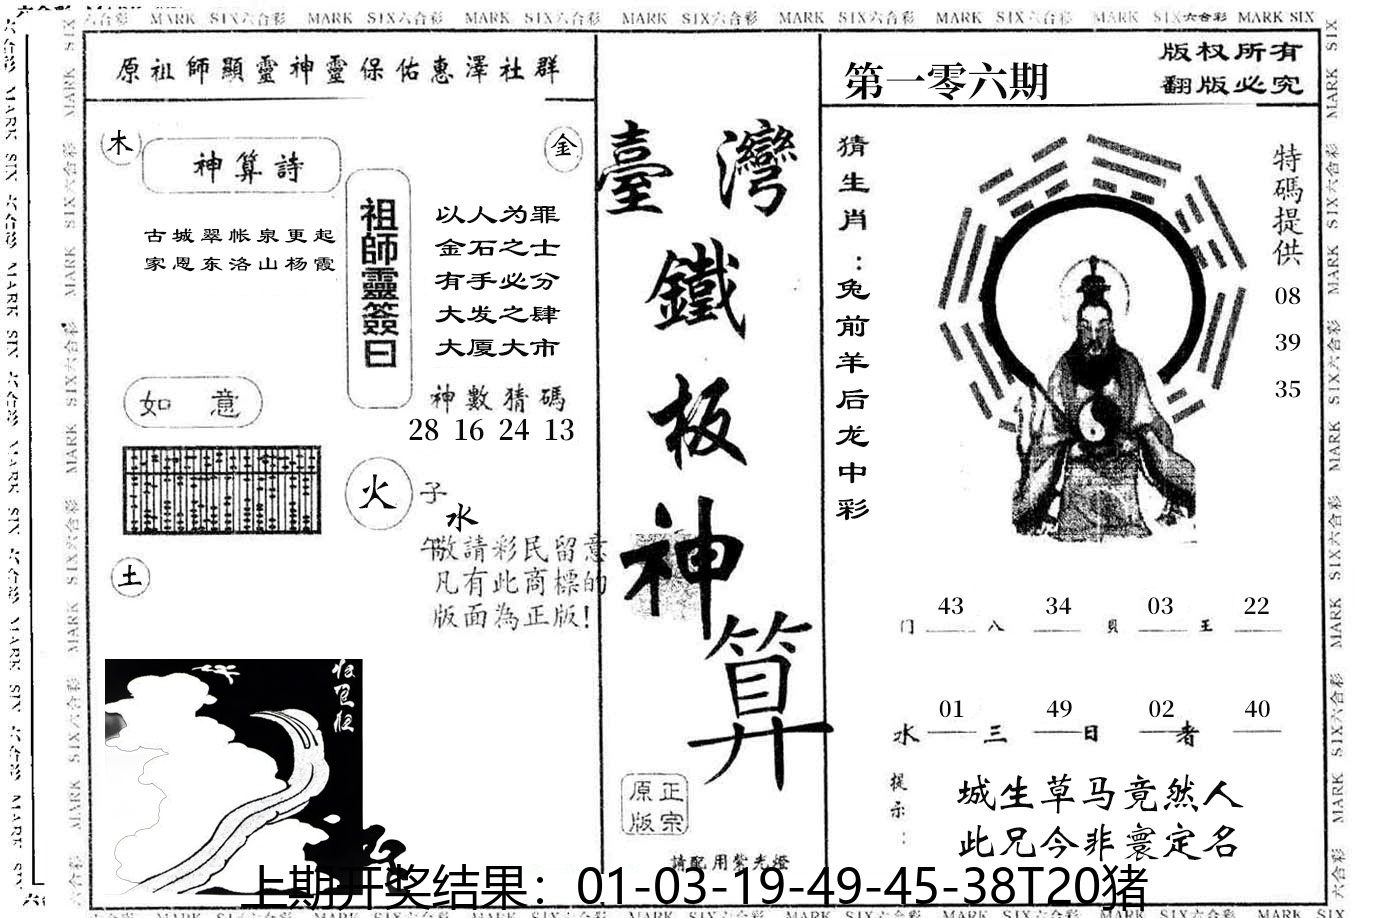 MARK SIX六合彩 MARK SIX六合彩 MARK SIX六合彩 MARK SIX六合彩 MARK SIX六合彩 MARK SIX六合彩 MARK SIX六合彩 MARK SIX
原祖師顯靈神靈保佑惠澤社群
木
神算詩
金
古城翠帐泉更起
家恩东洛山杨霞
祖師靈簽曰
以人为罪
金石之士
有手必分
大发之肆
大厦大市
神數猜碼
28 16 24 13
如意
火
子
水
午
敬請彩民留意
凡有此商標的
版面為正版!
土
臺灣
鐵
板
神
算
正宗
原版
請配用紫光燈
第一零六期
版权所有
翻版必究
猜生肖:兔前羊后龙中彩
特碼提供
08
39
35
43 34 03 22
门 八 貝 王
01 49 02 40
水 三 日 者
提示:
城生草马竟然人
此兄今非寰定名
上期开奖结果：01-03-19-49-45-38T20猪